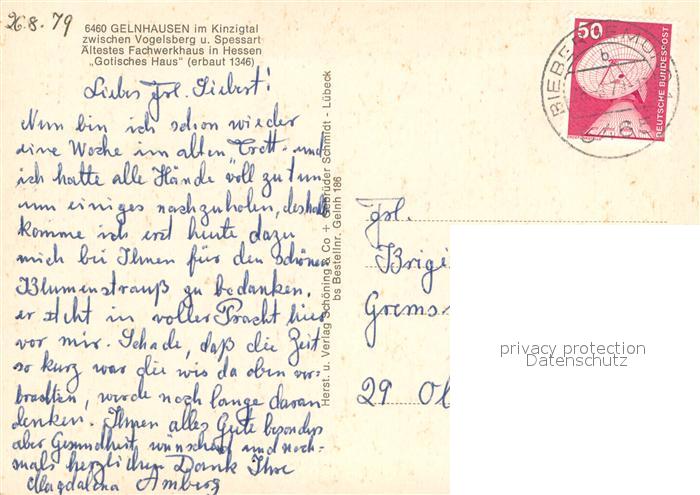 26.8.79
6460 GELNHAUSEN im Kinzigtal
zwischen Vogelsberg u. Spessart
Ältestes Fachwerkhaus in Hessen
„Gotisches Haus" (erbaut 1346)
Liebes Frl. Siebert!
Nun bin ich schon wieder
eine Woche im alten „Trott" und
ich hatte alle Hände voll zu tun
um einiges nachzuholen, deshalb
komme ich erst heute dazu
mich bei Ihnen für den schönen
Blumenstrauß zu bedanken.
er steht in voller Pracht hier
vor mir. Schade, daß die Zeit
so kurz war die wir da oben ver-
brachten, werde noch lange daran
denken. Ihnen alles Gute besonders
aber Gesundheit wünschend und noch-
mals herzlichen Dank Ihre
Magdalena Amberg
Herst. u. Verlag Schöning & Co + Gebrüder Schmidt - Lübeck
bs Bestellnr. Gelnh 186
50
DEUTSCHE BUNDESPOST
BIEBERGEMÜND
b
646
Frl.
Brigi
Grems
29 Ol
privacy protection
Datenschutz